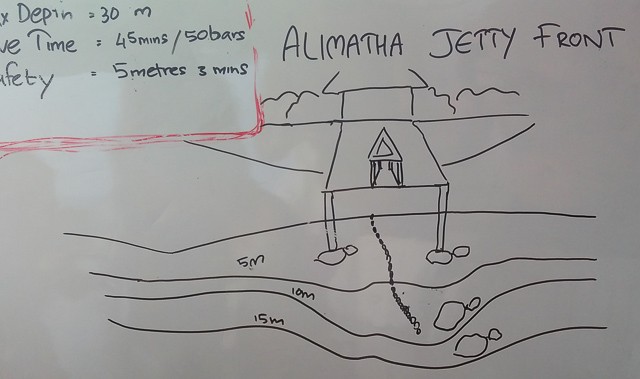 x Depth = 30 m
ve Time = 45mins/50bars
afety = 5metres 3 mins
ALIMATHA JETTY FRONT
5m
10m
15m